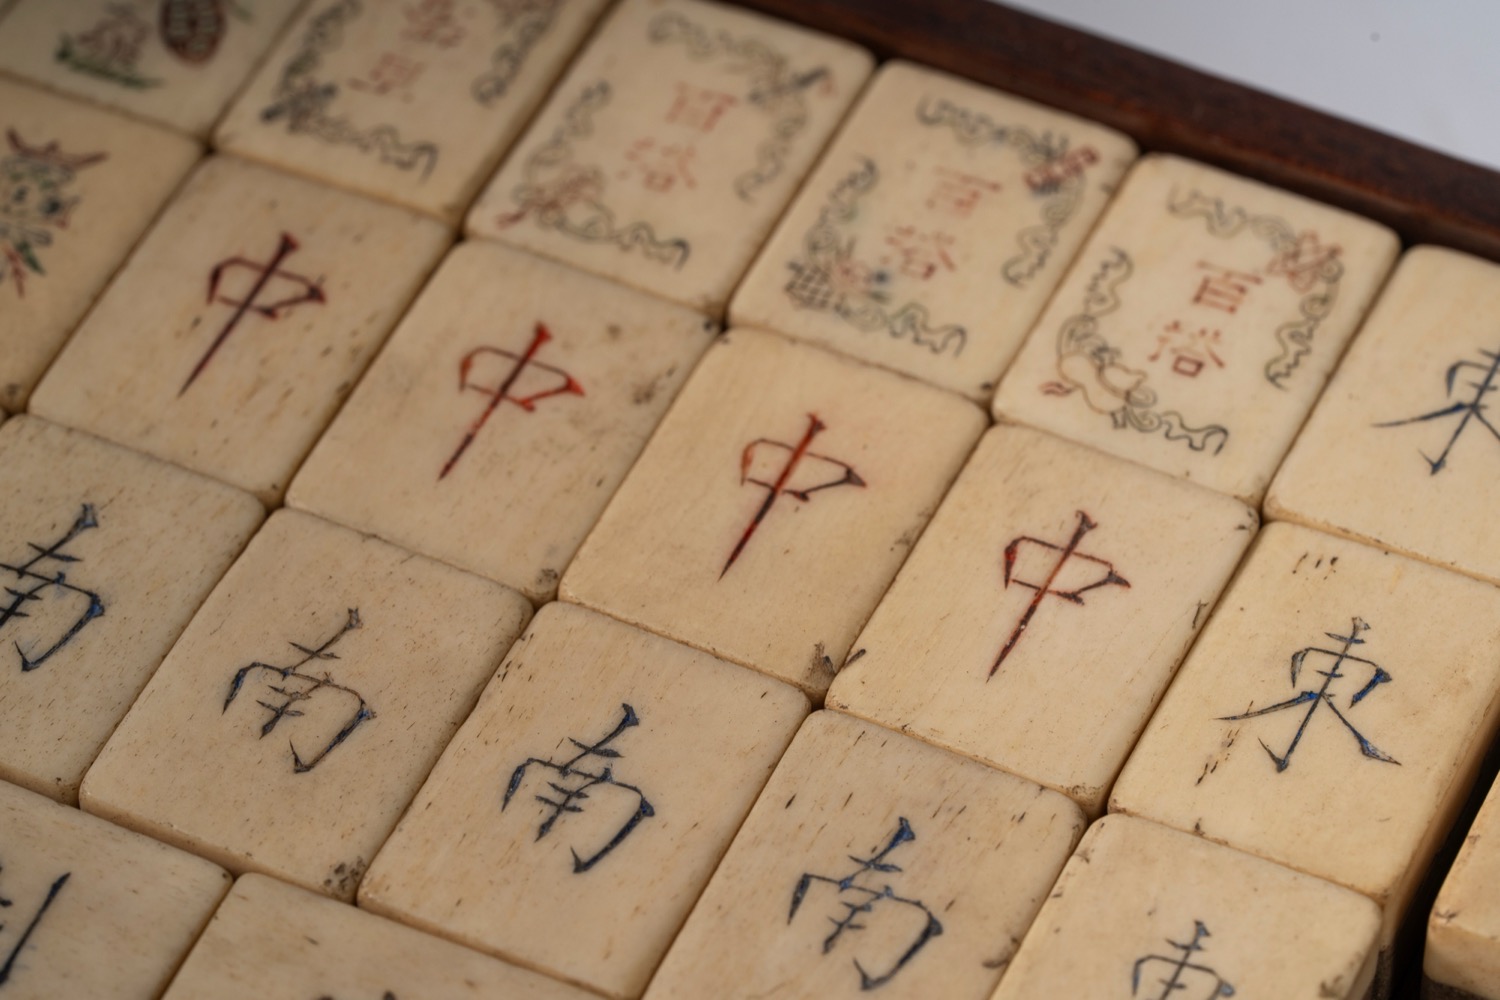 百搭
百搭
百搭
東
中
中
中
中
東
南
南
南
南
東